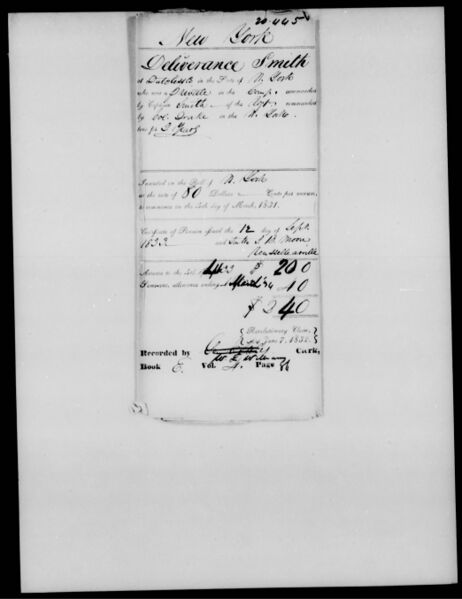 20.445
New York
Deliverance Smith
of Dutchess in the State of N. York
who was a Private in the Comp. commanded
by Captain Smith of the Regt commanded
by Col. Drake in the N. York
line for 2 Years
Inscribed on the Roll of N. York
at the rate of 80 Dollars Cents per annum,
to commence on the 4th day of March, 1831.
Certificate of Pension issued the 12 day of Sept.
1833 and
Arrears to the 4th $ 200
Semi-anl. allowance ending March 34 40
$ 240
Revolutionary Claim,
Act June 7, 1832.
Recorded by Clerk,
Book E. Vol. Page